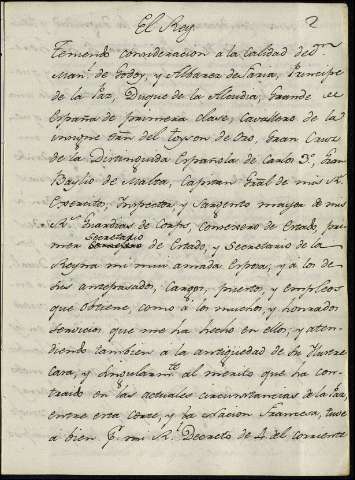 El Rey. 2
Teniendo consideracion a la calidad de Dn.
Manl. de Godoy, y Albarez de Faria, Principe
de la Paz, Duque de la Alcudia, Grande de
España de primera clase, Cavallero de la
insigne orn. del Toyson de Oro, Gran Cruz
de la Distinguida Española de Carlos 3º, Gran
Baylio de Malta, Capitan Gral de mis Rs.
Exercitos, Ynspector, y Sargento mayor de mis
Rs. Guardias de Corps, Consexero de Estado, pri-
Secretario
mer de Estado, y Secretario de la
Reyna mi muy amada Esposa, y a los de
sus antepasados, cargos, puestos, y empleos
que obtiene, como á los muchos, y honrados
servicios que me ha hecho en ellos, y aten-
diendo tambien á la antigüedad de su Ylustre
casa, y singularmte. al merito que ha con-
trahido en las actuales circunstancias de la Paz,
entre esta corte, y la Nacion Francesa, tuve
a bien p. mi Rl. Decreto de 4 del corriente